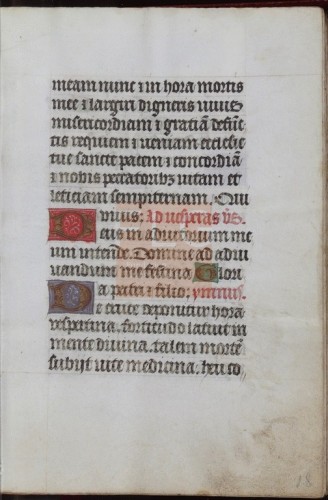 meam nunc ⁊ in hora mortis
mee ⁊ largiri digneris uiuis
misericordiam ⁊ gratiā defūc
tis requiem ⁊ ueniam ecclesie
tue sancte pacem ⁊ concordiā
⁊ nobis peccatoribꝫ uitam et
leticiam sempiternam. Qui
uiuis. Ad uesperas v̄s
Deus in adiutorium me
um intende. Domine ad adiu
uandum me festina Glori
a patri ⁊ filio. ymnus.
De cruce deponitur hora
vespertina. fortitudo latuit in
mente diuina. talem mortē
subijt uite medicina. heu co
18